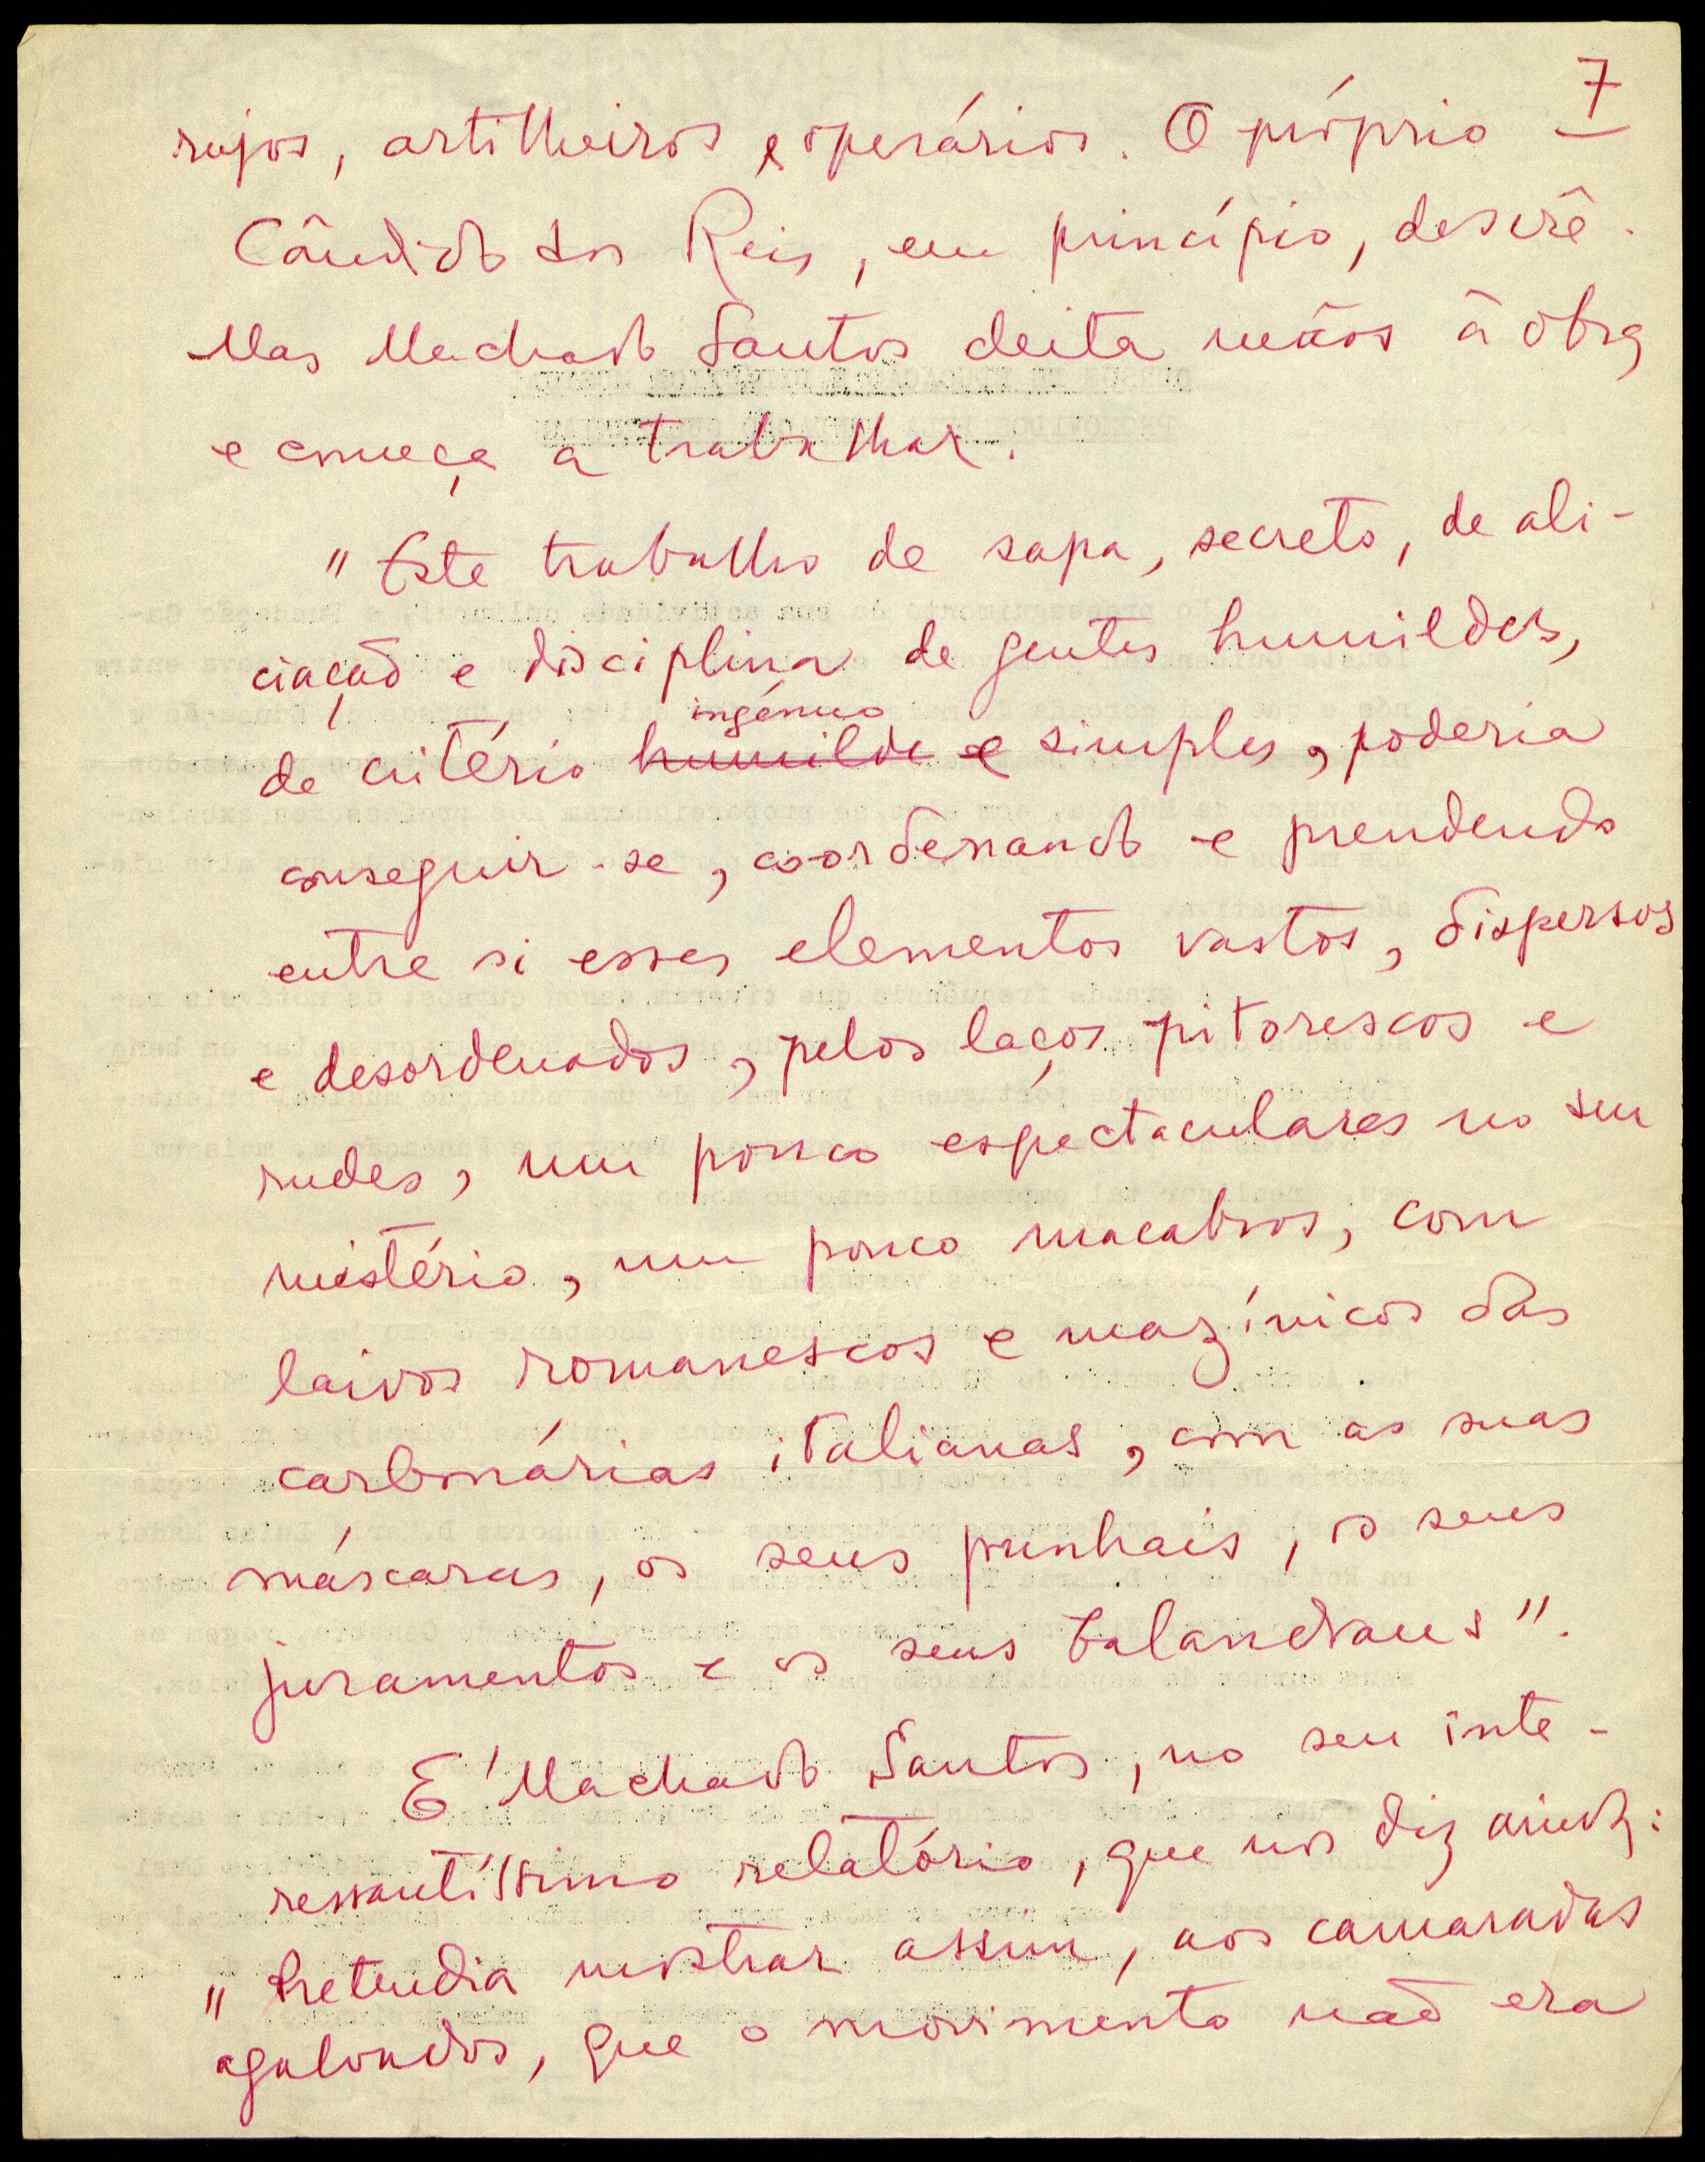 7
rujos, artilheiros e operários. O próprio
Cândido dos Reis, em princípio, descrê.
Mas Machado Santos deita mãos à obra
e começa a trabalhar.
"Este trabalho de sapa, secreto, de ali-
ciação e disciplina de gentes humildes,
ingénuo
de critério humilde e simples, poderia
conseguir-se, coordenando e prendendo
entre si esses elementos vastos, dispersos
e desordenados, pelos laços pitorescos e
rudes, um pouco espectaculares no seu
mistério, um pouco macabros, com
laivos romanescos e mazínicos das
carbonárias italianas, com as suas
máscaras, os seus punhais, os seus
juramentos e os seus balandraus".
É Machado Santos, no seu inte-
ressantíssimo relatório, que nos diz ainda:
"Pretendia mostrar assim, aos camaradas
agaloados, que o movimento não era